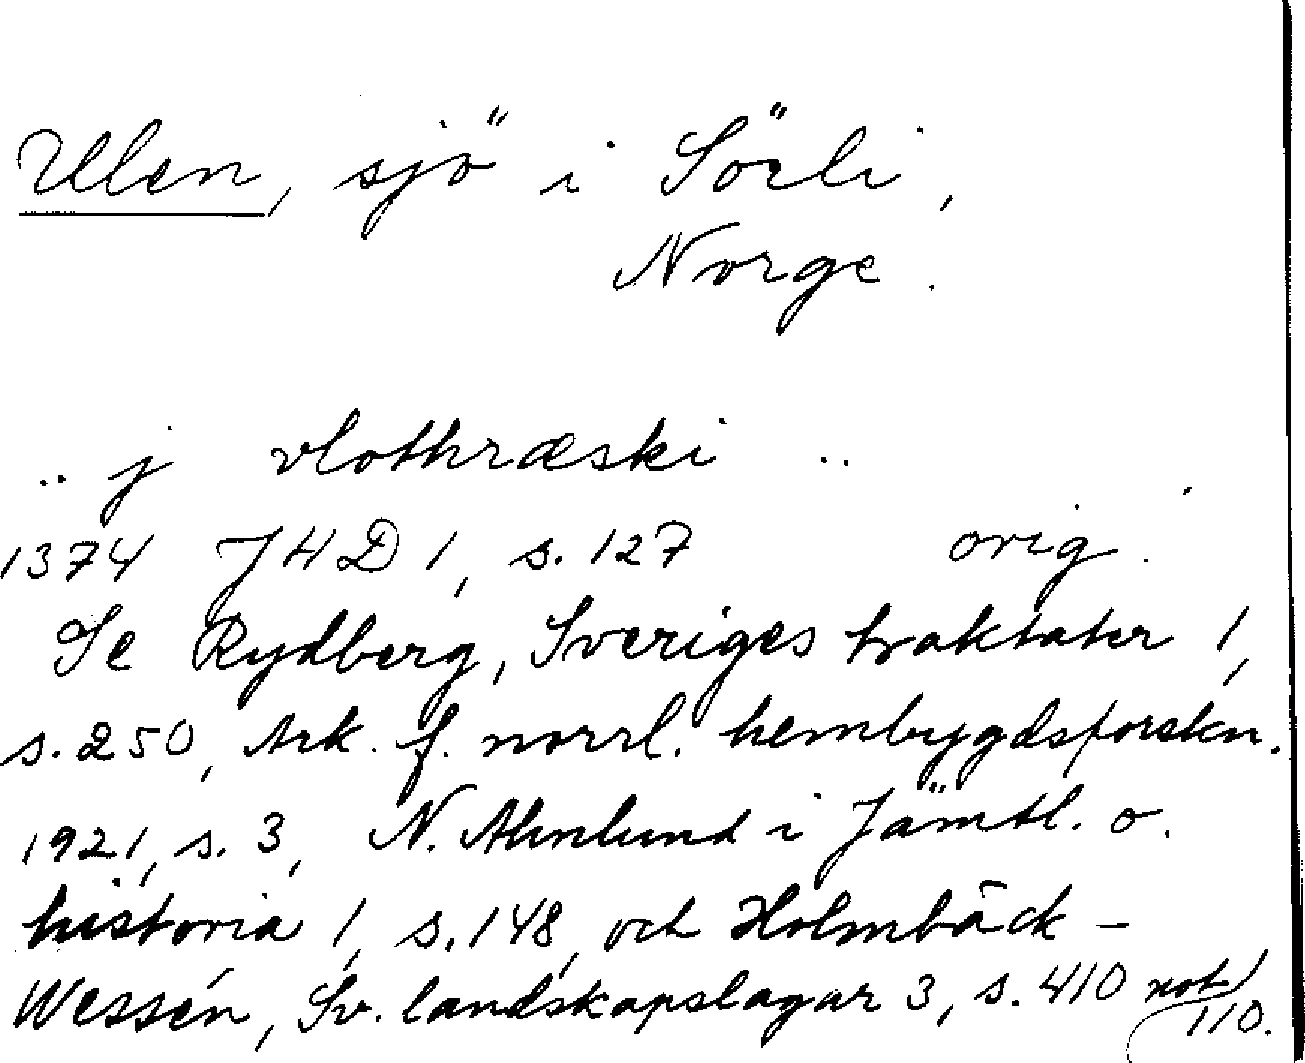 Ulen, sjö i Sörli,
Norge.
.. j vlothræski ..
1374 JHD 1, s. 127 orig.
Se Rydberg, Sveriges traktater 1,
s. 250, Ark. f. norrl. hembygdsforskn.
1921, s. 3, N. Ahnlund i Jämtl. o.
historia 1, s. 148, och Holmbäck -
Wessén, Sv. landskapslagar 3, s. 410 not
110.